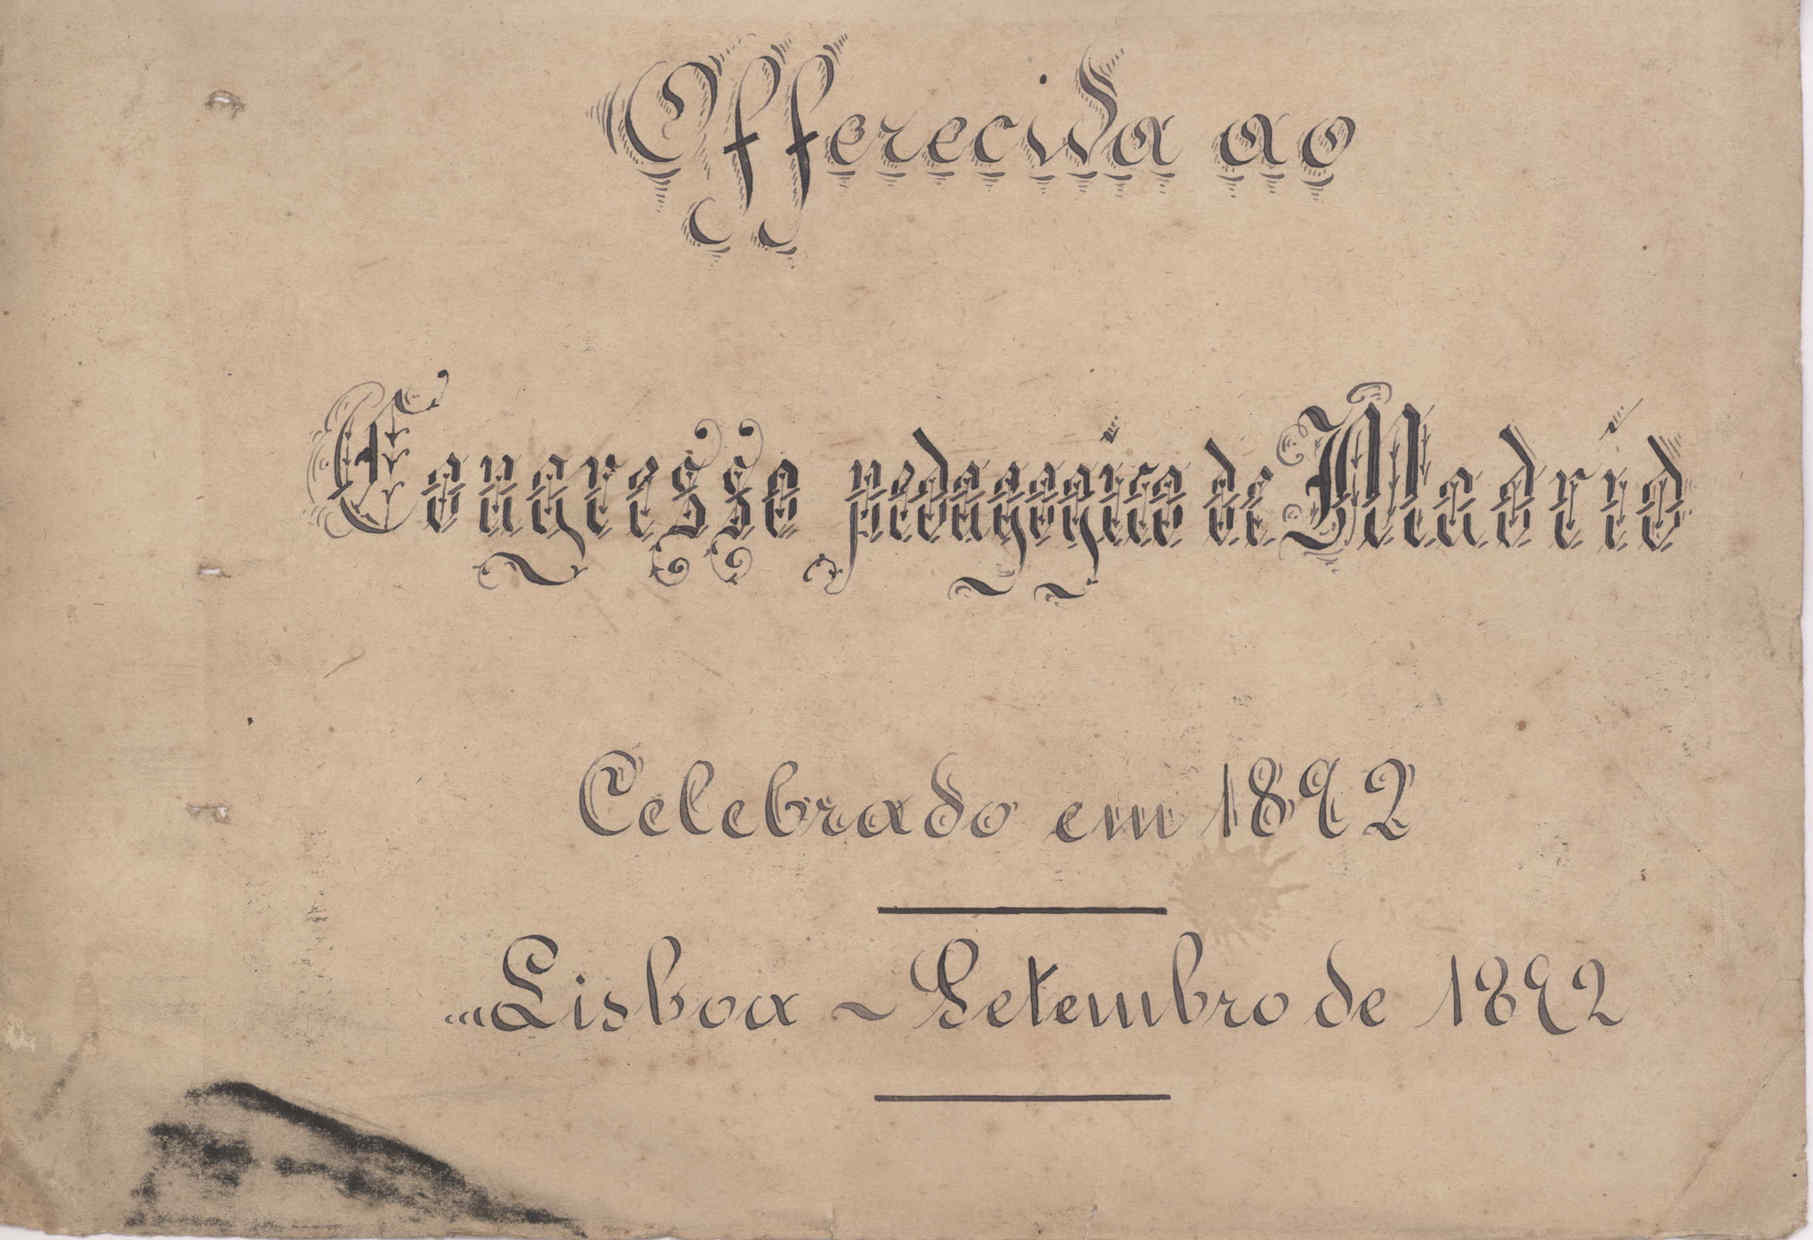 Offerecida ao
Congresso pedagogico de Madrid
Celebrado em 1892
Lisboa ~ Setembro de 1892